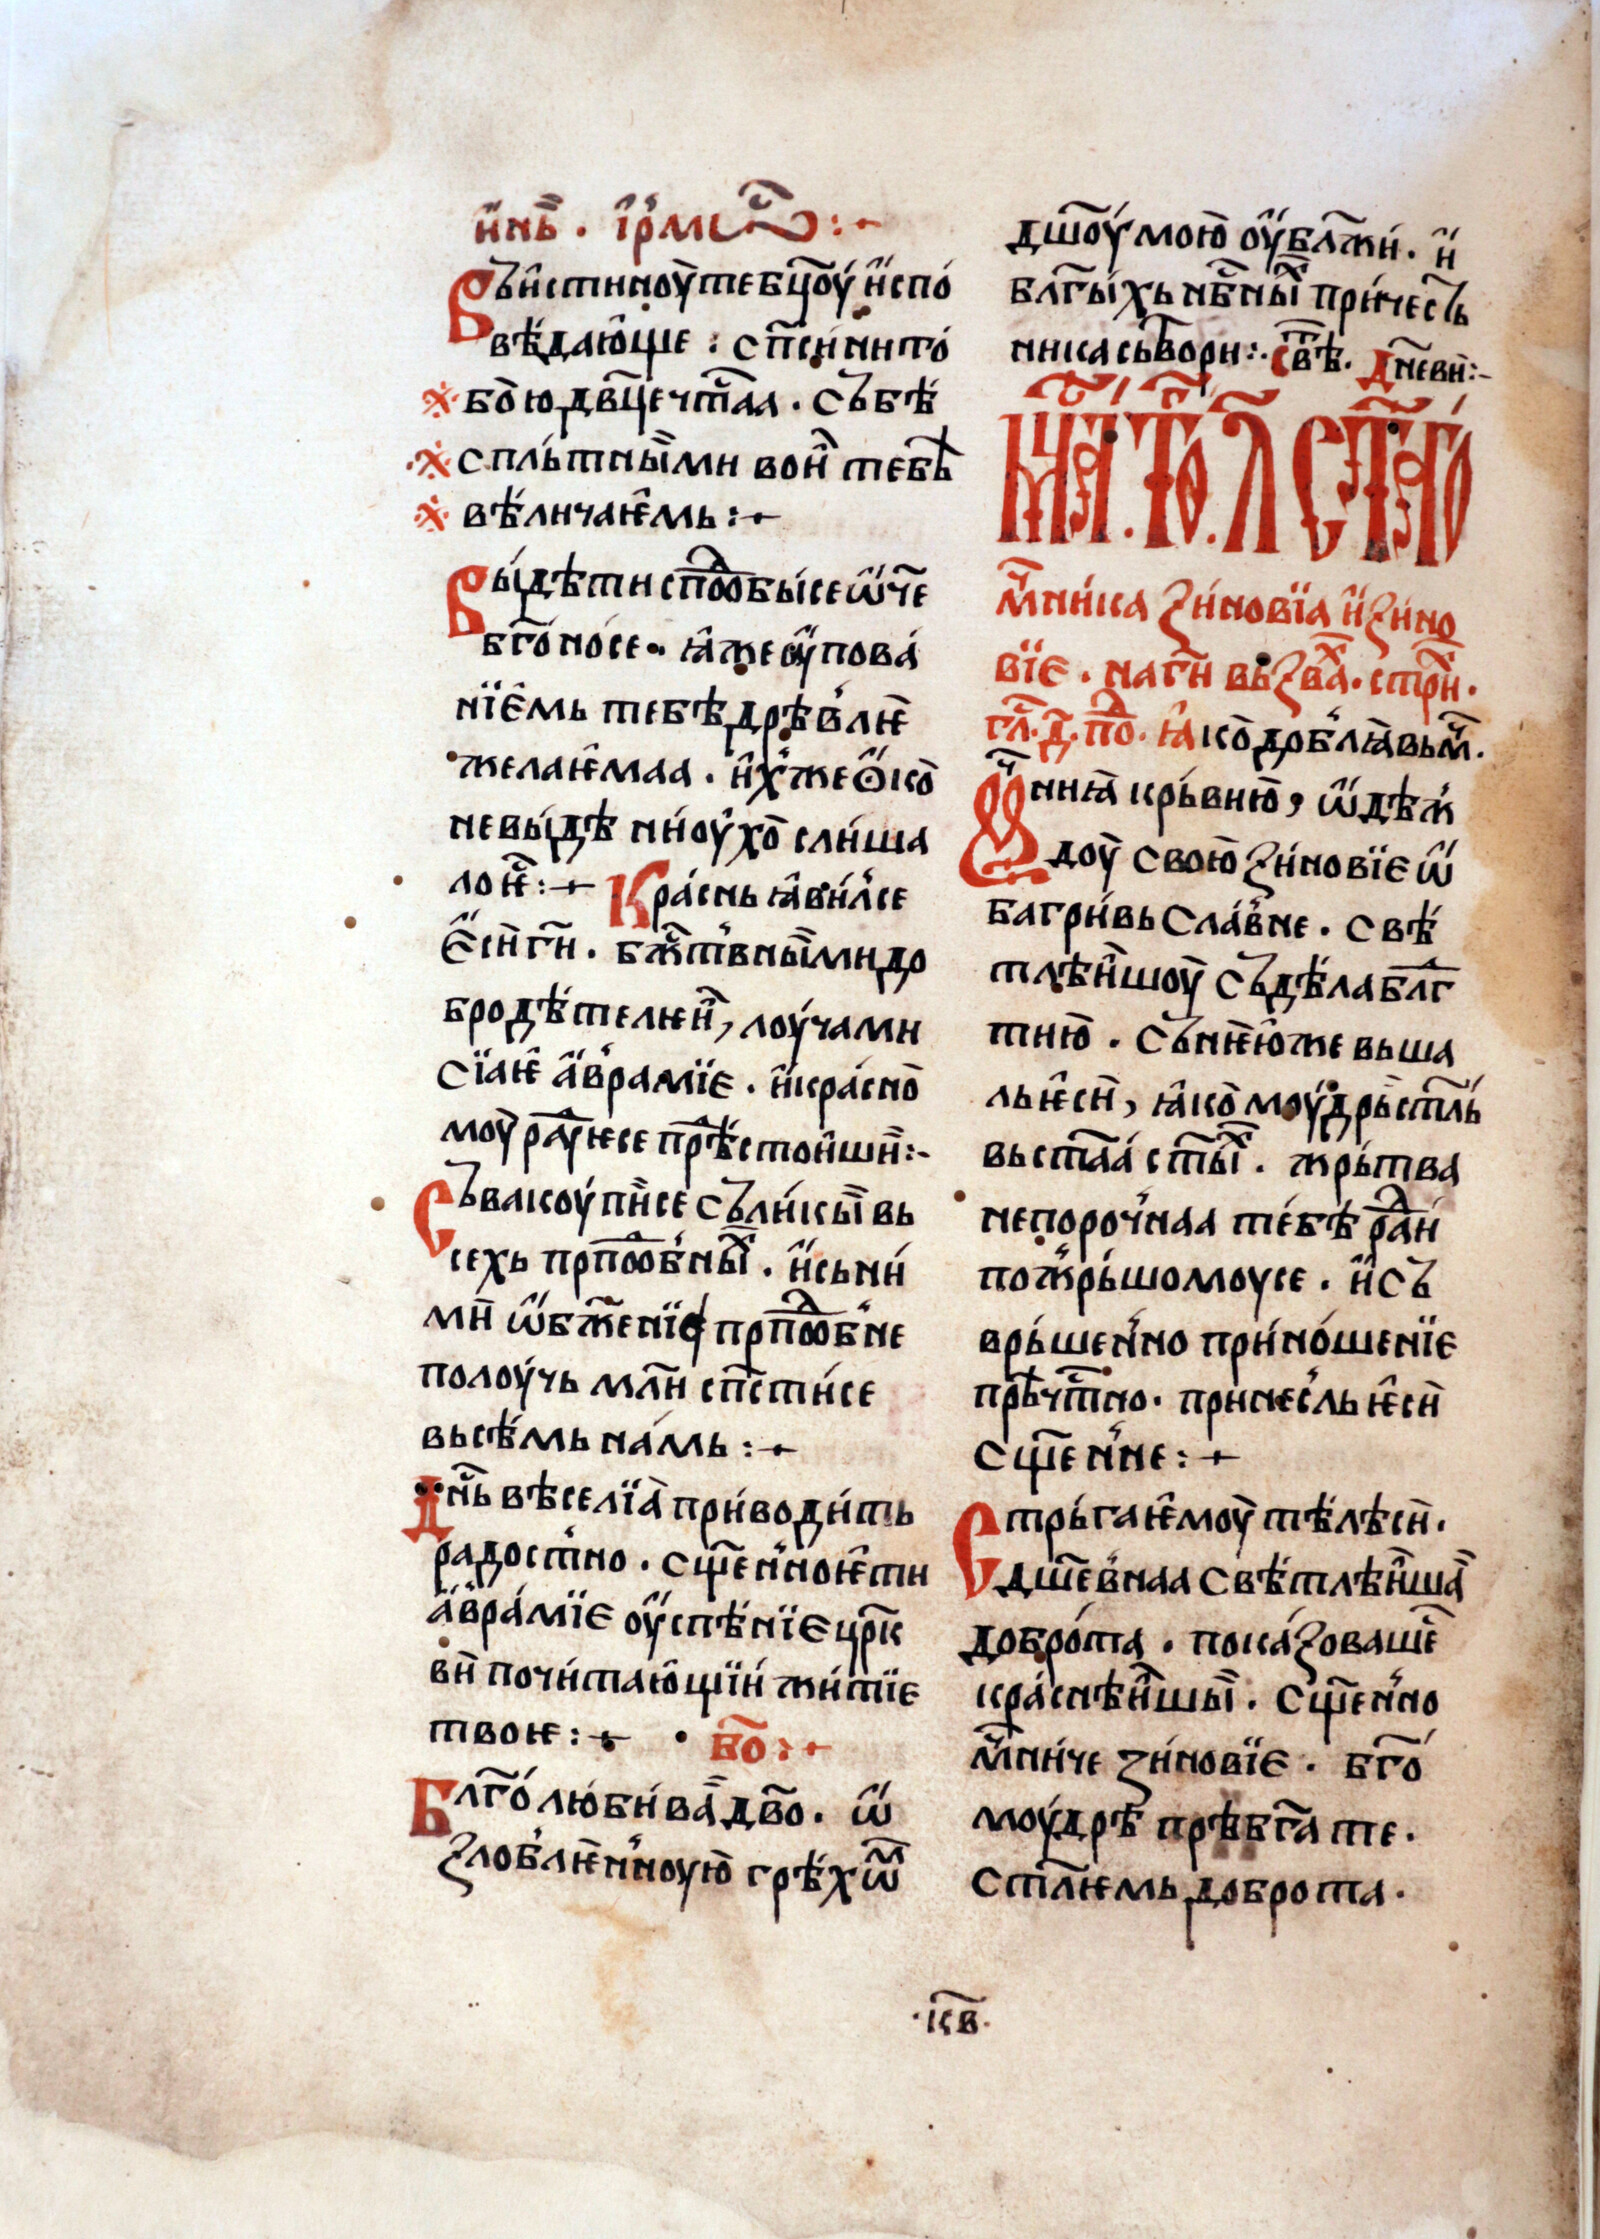 и҆ны̏ . і҆рмѡ҇с :~
Въи҆стиноу̀ те бц҃оу́ и҆спо́
вѣ́даю҆ще : сп҃се́ни то́
бо́ю дв҃це чт҇аа . съ бѣ́
с пль́тныи҆ми вои҆ тебѣ̀
вѣ́личаѥ҆мь :~
Вы́дѣти спⷣобы́се ѿче
бг҃оно́се . ꙗ҆же оу҆пова́
нїе҆мь тебѣ дрѣ́влѥ
желаѥ҆маа . и҆хже ѻ҆ко̀
невы́дѣ ни оу҆хо̀ сли́ша
ло ѥ҆с :~ Кра́снь ꙗ҆ви́лсе
е҆сѝ гѝ . бж҃тв́ныи҆ми до
бродѣ́телѥи҆, лоу́чами
сїаѥ҆ а҆врамїе . и҆ кра́сно̀
моу̀ раⷣуѥсе прⷣѣстои҆шѝ :~
Съвакоупѝсе съ ли́кы̏ вь
сехь прпⷣо́бны̏х . и҆ сь ни́
мѝ ѡ҆бж҃енїе прпⷣо́бне
полоу́чь мл҃и сп҃сти́се
вьсѣ́мь на́мь :~
Дн҃ь вѣ́селїа приводи́ть
ра́достно . сщ҃енно ѥ҆ти
а҆вра́мїе оу҆спѣ́нїе цр҃к
вѝ почи́таю҆щїи́ жи́тїе
твоѥ :~ . бо҃ :~
Бл҃го́люби́ваа дв҃о . ѡ҆
злоблѥ́нноую̀ грѣ́хѡⷨ
дш҃оу́ мою̀ оу҆бл҃жи́ . и҆
бл҃гы́хь нбⷭ҇ныⷯ при́честь
ника сьтвори :. св҃ѣ . дн҃евѝ :~
мⷭ҇ца . то҃ . л҃ ст҃аго
мⷱ҇ни́ка зи́новїа и҆ зи́но
вїе . на ги вьзваⷯ . стрⷯи .
гл҃. д҃. поⷣ. ꙗ҆ко̀ до́блꙗ̀ вь мⷱ҇.
Мⷱ҇ниꙗ̀ крь́вию̀, ѡ҆дѣ́ж
доу̀ свою̀ зи́новїе ѡ҆
багри́вь сла́вне . свѣ́
тлѣи҆шоу̀ съдѣ́ла бл҃г
тию̀ . съ нѥю҆же вьша
ль ѥ҆сѝ, ꙗ҆ко̀ моу́дрь ст҃ль
вь ст҃аа́ ст҃ыⷯ . жрь́тва
непоро́чнаа те́бѣ раⷣи́
пожрь́шомоусе . и҆ съ
врь́шенно при́но́шенїе
прⷣѣчт҇но . принесль ѥ҆сѝ
сщ҃енне :~
Стрьгаѥ҆моу̀ тѣ́лѣсѝ .
дш҃е́внаа свѣ́тлѣи҆шаа
добро́та . пока́зоваше
кра́снѣи҆шы̏ . сщ҃енно
мⷱ҇ни́че зи́новїе . бг҃о́
моу́дрѣ прѣ́бг҃ате .
ст҃лѥмь доброта .
.кв҃.